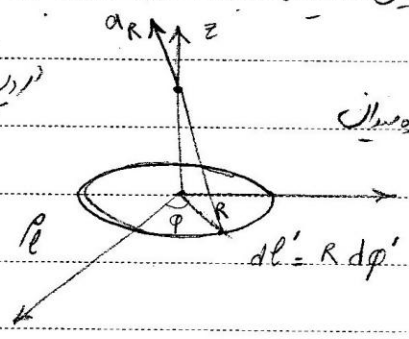 a_R z
میدان
R
ρ_ℓ φ
dl' = R dφ'